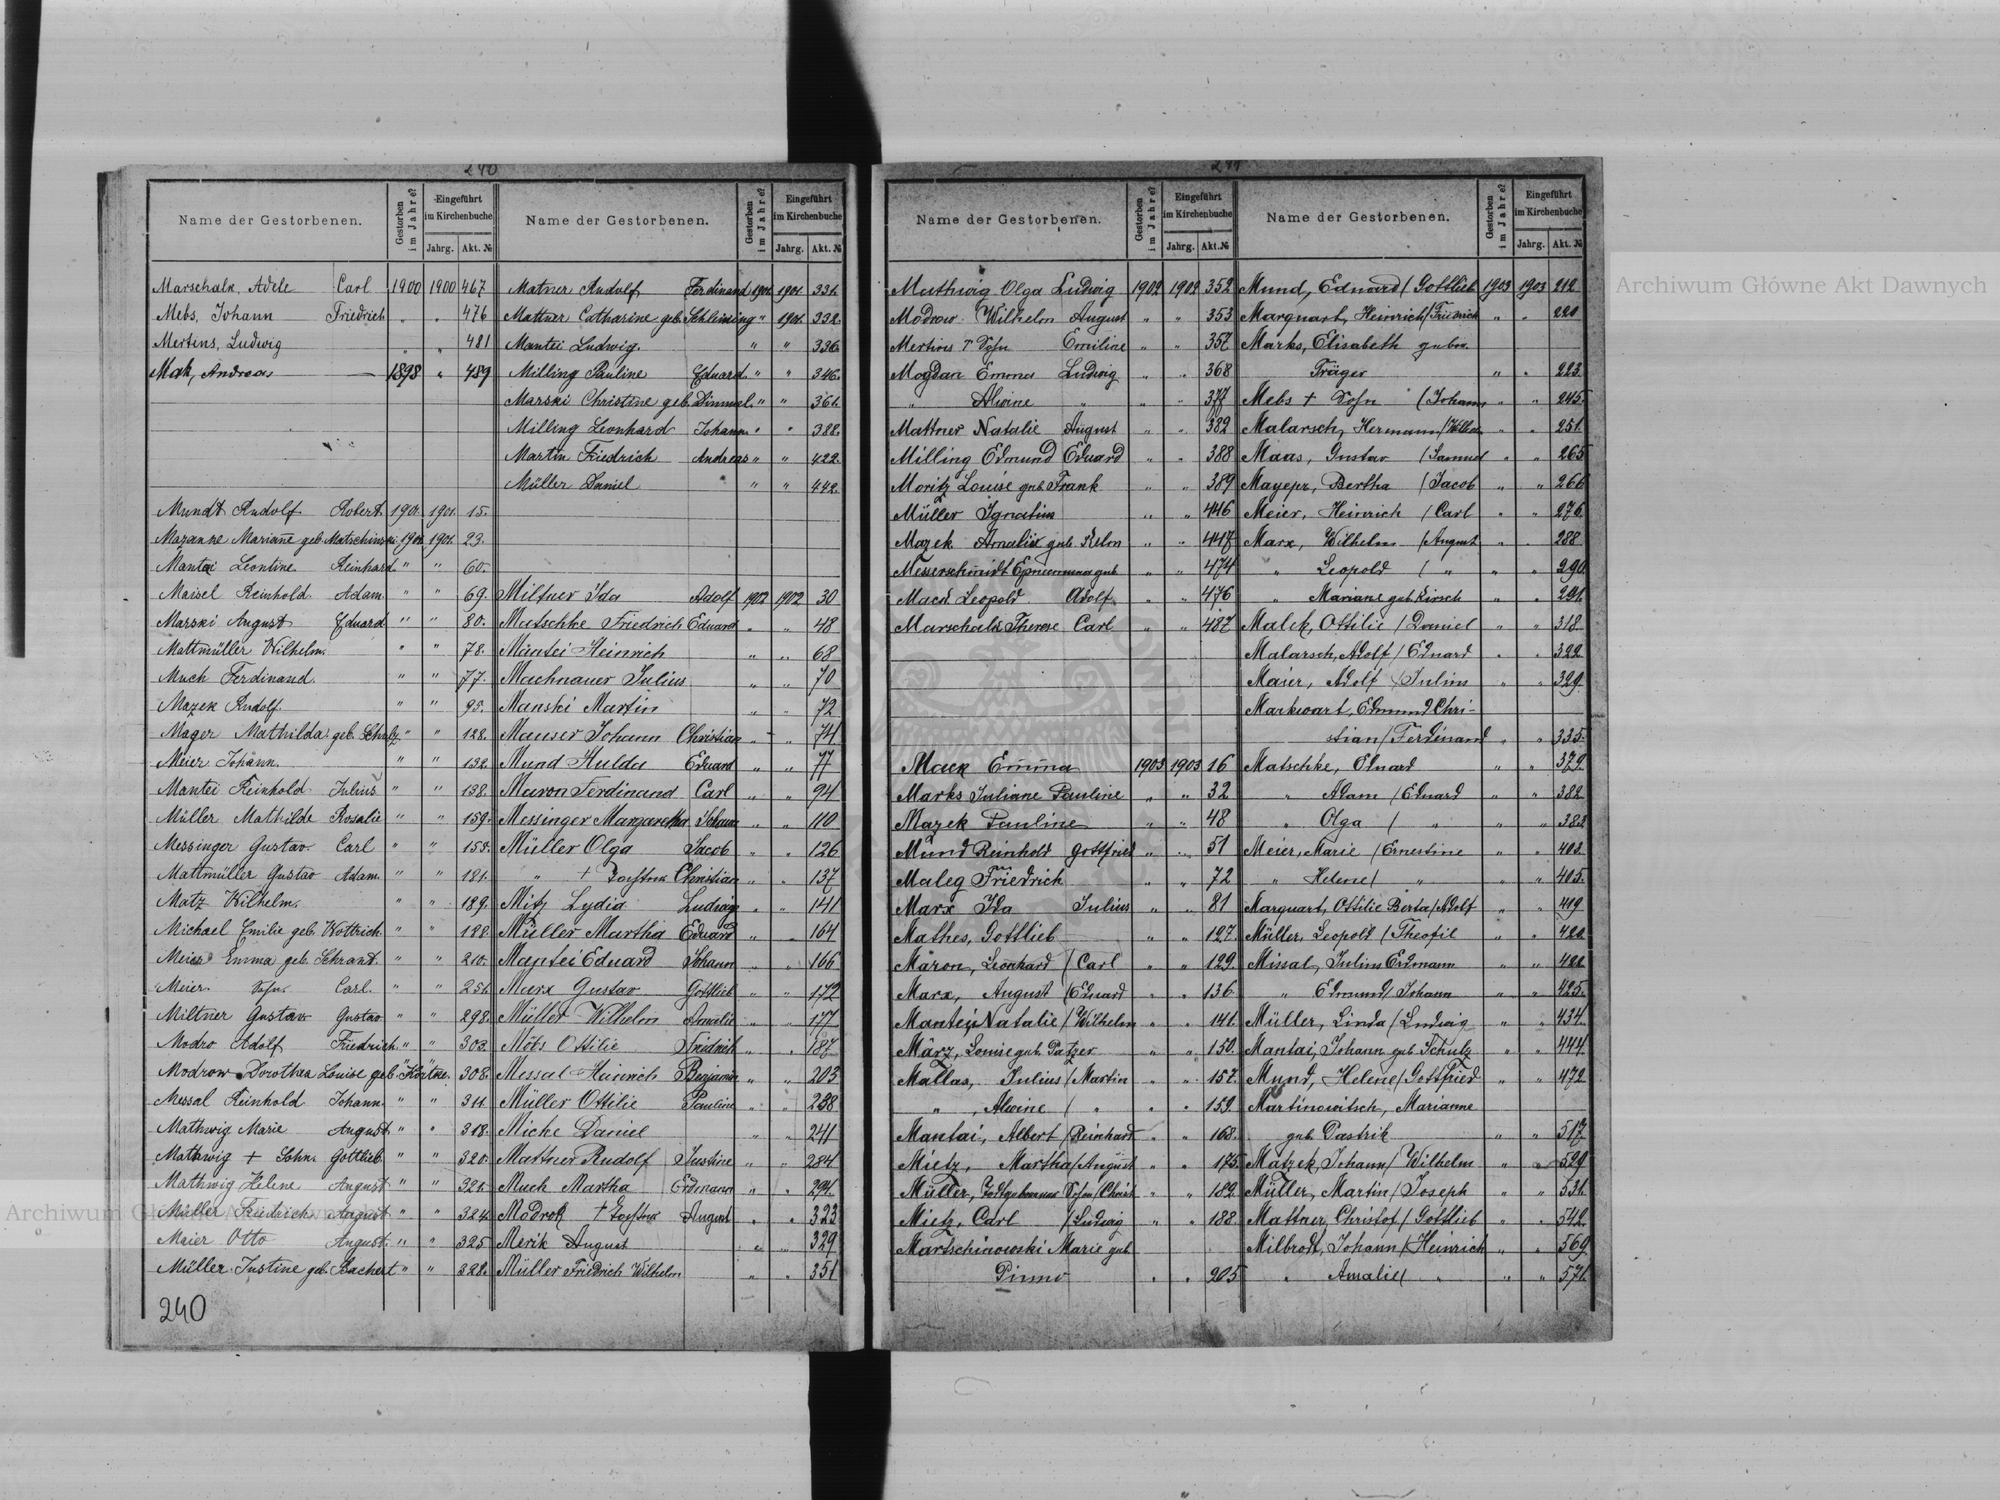 240
Name der Gestorbenen. Gestorben im Jahre? Eingeführt im Kirchenbuche Jahrg. Akt. №
Name der Gestorbenen. Gestorben im Jahre? Eingeführt im Kirchenbuche Jahrg. Akt. №
Marschalk, Adele Carl 1900 1900 467
Mebs, Johann Friedrich " " 476
Mertins, Ludwig " " 481
Mak, Andreas — 1898 " 489
Mundt Rudolf Robert 1901. 1901. 15.
Mazanke Mariane geb. Matschinski 1901. 1901. 23.
Mantei Leontine Reinhard " " 60.
Maisel Reinhold Adam " " 69.
Marski August Eduard " " 80.
Mattmüller Wilhelm. " " 78.
Much Ferdinand. " " 77.
Mazek Rudolf. " " 95.
Mager Mathilda geb. Schulz " " 128.
Meier Johann. " " 132.
Mantei Reinhold Julius " " 138.
Müller Mathilde Rosalie " " 159.
Messinger Gustav. Carl " " 158.
Mattmüller Gustav Adam. " " 181.
Matz Wilhelm. " " 189.
Michael Emilie geb. Wottrich. " " 128.
Meier Emma geb. Schrant. " " 210.
Meier. Sohn. Carl. " " 251.
Miltner Gustav Gustav " " 298.
Modro Adolf Friedrich " " 303.
Modrow Dorothea Louise geb. Körtke. " " 308.
Messal Reinhold Johann. " " 311.
Mathwig Marie August " " 318.
Mathwig + Sohn Gottlieb. " " 320.
Mathwig Helene August " " 321.
Müller Friedrich August " " 324.
Maier Otto August. " " 325.
Müller Justine geb. Bachert " " 328.
240
Matner Rudolf Ferdinand 1901. 1901. 331.
Mattner Catharine geb. Schlemling " 1901. 332.
Mantei Ludwig. " " 336.
Milling Pauline Eduard " " 346.
Marski Christine geb. Dimmel. " " 361.
Milling Leonhard Johann. " " 388.
Martin Friedrich Andreas " " 422.
Müller Daniel " " 442.
Miltner Ida Adolf 1902 1902 30
Mutschke Friedrich Eduard " " 48
Mantei Heinrich " " 68
Machnauer Julius " " 70
Manski Martin " " 72
Mauser Johann Christian " " 74
Mund Hulda Eduard " " 77
Maron Ferdinand Carl " " 94
Messinger Margaretha Johann " " 110
Müller Olga Jacob " " 126
" + Tochter Christian " " 137
Mitz Lydia Ludwig " " 141
Müller Martha Eduard " " 164
Mantei Eduard Johann " " 166
Marx Gustav Gottlieb " " 172
Müller Wilhelm Amalie " " 177
Möbs Ottilie Friedrich " " 187
Messal Heinrich Benjamin " " 203
Müller Ottilie Pauline " " 238
Miche Daniel " " 241
Mattner Rudolf Justine " " 284
Much Martha Erdmann " " 294.
Modrok + Tochter August " " 323
Merik August " " 329
Müller Friedrich Wilhelm " " 351
241
Name der Gestorbenen. Gestorben im Jahre? Eingeführt im Kirchenbuche Jahrg. Akt. №
Name der Gestorbenen. Gestorben im Jahre? Eingeführt im Kirchenbuche Jahrg. Akt. №
Mathwig Olga Ludwig 1902 1902 352
Modrow Wilhelm August " " 353
Mertins + Sohn Emiline " " 357
Mogdan Emma Ludwig " " 368
" Alwine " " " 377
Mattner Natalie August " " 382
Milling Edmund Eduard " " 388
Moritz Louise geb. Frank " " 389
Müller Ignatius " " 446
Mazek Amalie geb. Kelm " " 447
Messerschmidt geb. " " 474
Mack Leopold Adolf. " " 476
Marschalk Therese Carl " " 487
Mack Emma 1903 1903 16
Marks Juliane Pauline " " 32
Mazek Pauline " " 48
Mund Reinhold Gottfried " " 51
Maleg Friedrich " " 72
Marx Ida Julius " " 81
Mathes, Gottlieb " " 127.
Maron, Leonhard / Carl " " 129.
Marx, August / Eduard " " 136
Mantei, Natalie / Wilhelm " " 141.
März, Louise geb. Patzer " " 150.
Mallas, Julius / Martin " " 157.
" , Alwine / " " " 159.
Mantai, Albert / Reinhard " " 168.
Mietz, Martha / August " " 175.
Müller, Todtgeborener Sohn / Christ " " 182.
Mietz, Carl / Ludwig " " 188.
Martschinowski Marie geb.
Pinno " " 205
Mund, Eduard / Gottlieb 1903 1903 212
Marquart, Heinrich / Friedrich " " 221
Marks, Elisabeth geborn.
Träger " " 223.
Mebs + Sohn / Johann " " 245.
Malarsch, Hermann / Wilhelm " " 251.
Maas, Gustav / Samuel " " 265
Mayer, Bertha / Jacob " " 266
Meier, Heinrich / Carl " " 276.
Marx, Wilhelm / August " " 288
" Leopold / " " " 290.
" Mariane geb. Kirsch " " 291.
Malek, Ottilie / Daniel " " 318
Malarsch, Adolf / Eduard " " 322.
Maier, Adolf / Julius " " 329.
Markwart, Edmund Chri-
stian / Ferdinand " " 335.
Matschke, Eduard " " 379.
" Adam / Eduard " " 382
" Olga / " " " 383
Meier, Marie / Ernestine " " 403.
" Helene / " " " 405.
Marquart, Ottilie Berta / Adolf " " 419
Müller, Leopold / Theofil " " 420
Missal, Julius Erdmann " " 422
" Edmund / Johann " " 425.
Müller, Linda / Ludwig " " 434.
Mantai, Johann geb. Schulz " " 444.
Mund, Helene / Gottfried " " 472
Martinowitsch, Marianne
geb. Pastrik " " 517.
Matzek Johann / Wilhelm " " 529.
Müller, Martin / Joseph " " 531.
Mattner, Christof / Gottlieb " " 542.
Milbrodt, Johann / Heinrich " " 569.
" Amalie / " " " 571.
Archiwum Główne Akt Dawnych
Archiwum Główne Akt Dawnych